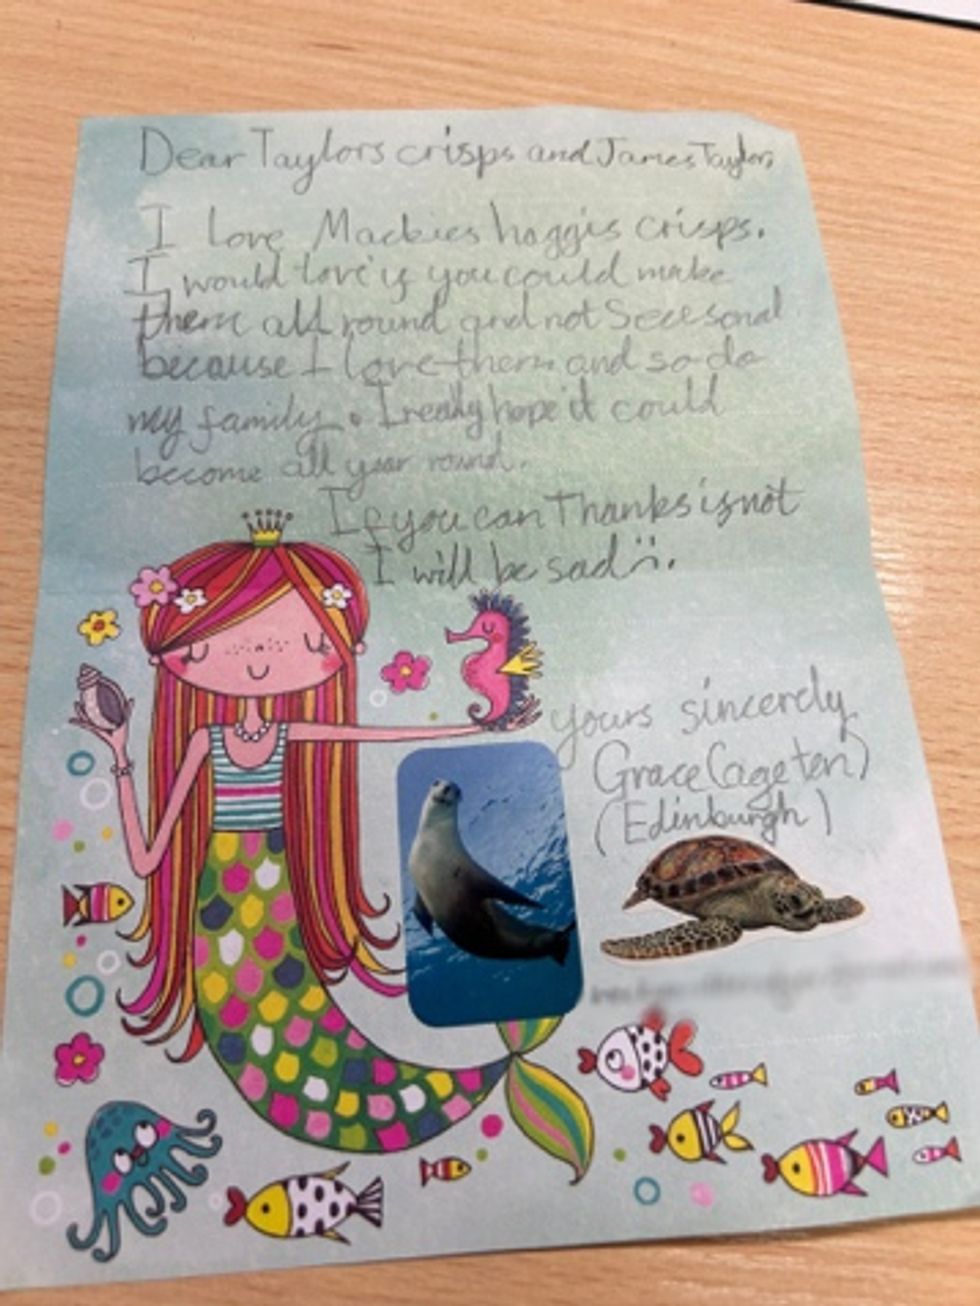 Dear Taylors crisps and James Taylor,
I love Mackies haggis crisps.
I would love if you could make
them all round and not Secesonal
because I love them and so do
my family. I really hope it could
become all year round.
If you can Thanks if not
I will be sad :(.
yours sincerely
Grace (age ten)
(Edinburgh)